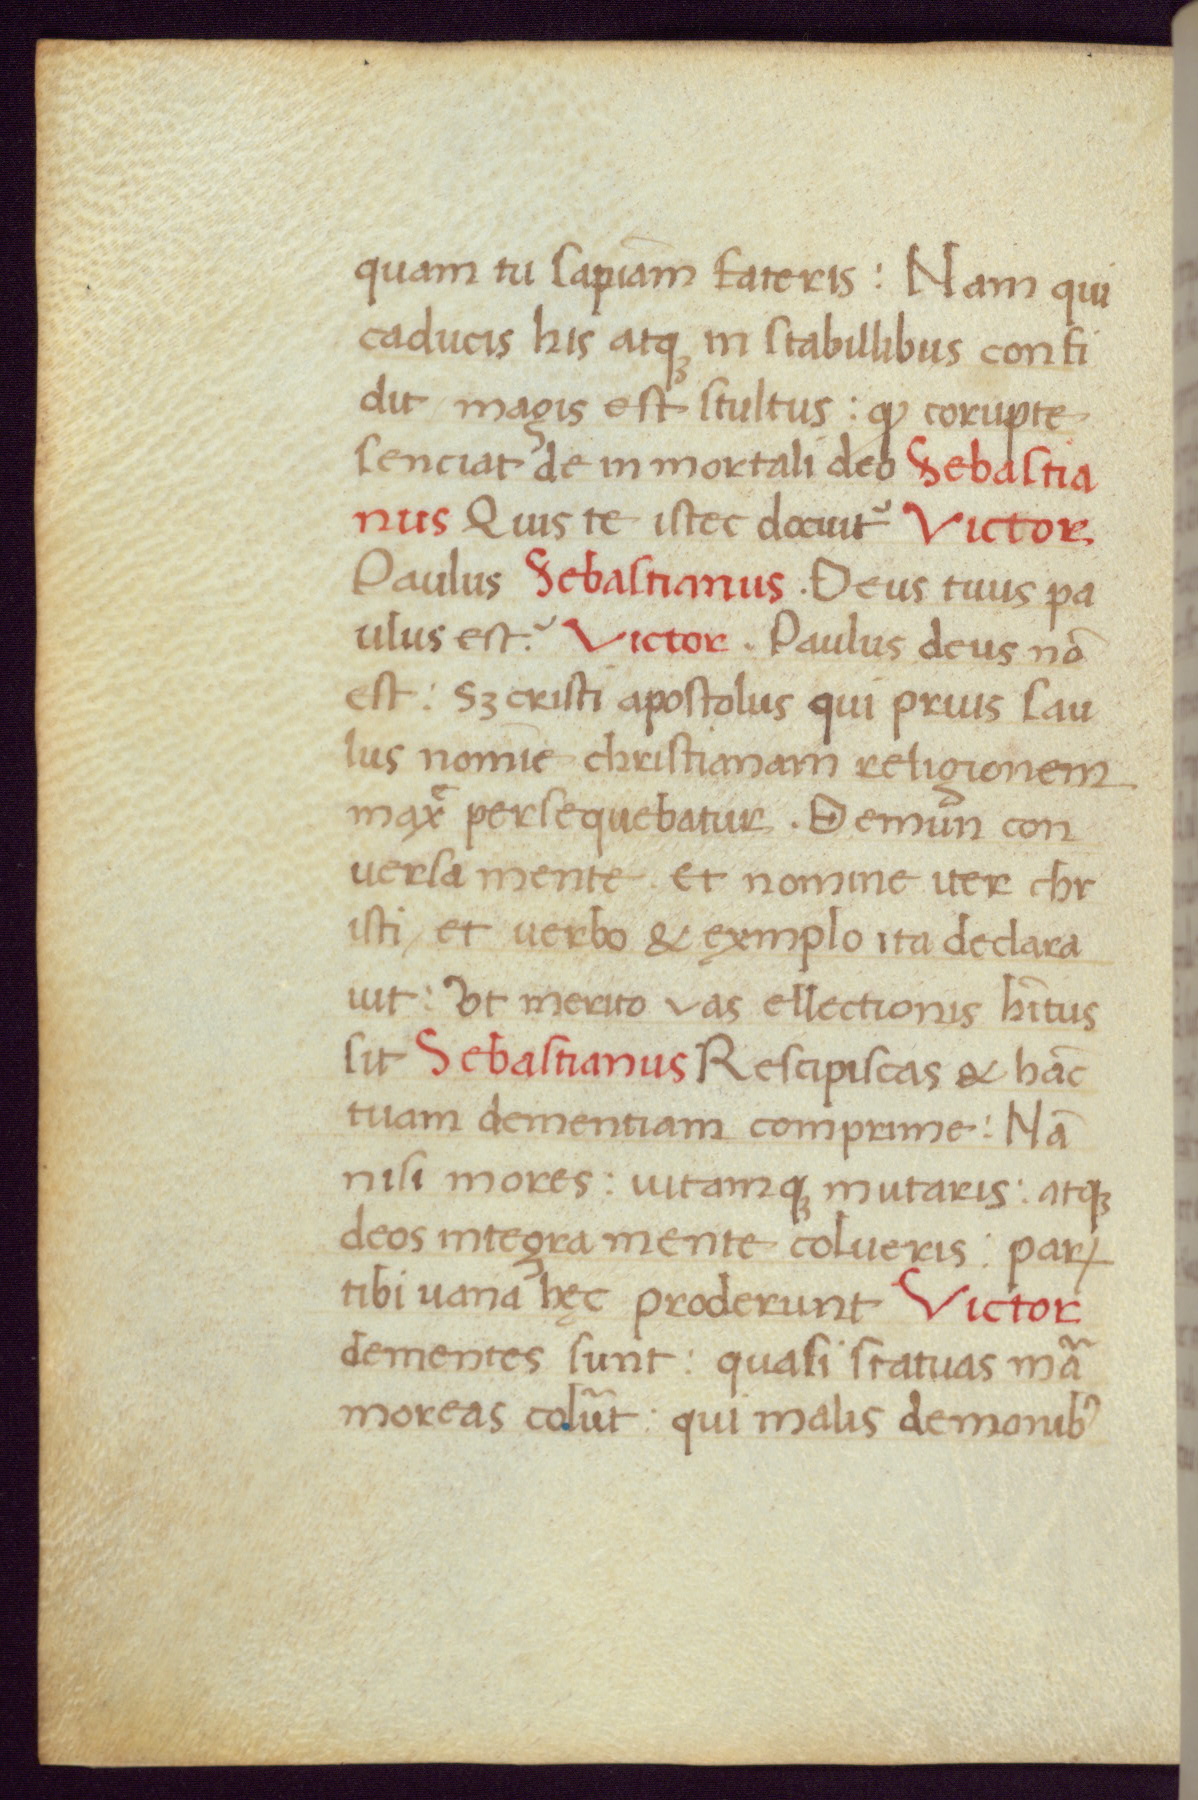 quam tu sapiam̄ fateris : Nam qui
caducis his atqꝫ in stabillibus confi
dit magis est stultus : qͥ corupte
senciat de in mortali deo Sebastia
nus Quis te istec docuit? Victor
Paulus Sebastianus . Deus tuus pa
ulus est? Victor . Paulus deus nō
est : Sꝫ cristi apostolus qui prius sau
lus nomīe christianam religionem
maxͤ persequebatur . Demūn con
uersa mente et nomine uer chr
isti / et uerbo & exmplo ita declara
uit : Vt merito vas ellectionis hītus
sit Sebastianus Rescipiscas & hāc
tuam dementiam comprime : Nā
nisi mores : uitamqꝫ mutaris : atqꝫ
deos integra mente colueris : par/
tibi uana hęc proderunt Victor
dementes sunt : quasi statuas mā
moreas colūt : qui malis demonibꝰ